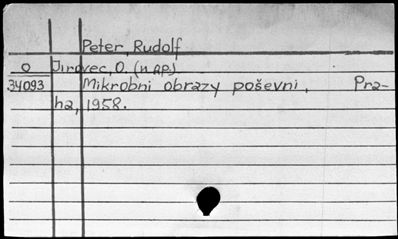 Peter, Rudolf
O Jirovec, O. (нар)
34093 Mikrobni obrazy poševni, Pra-
ha, 1958.